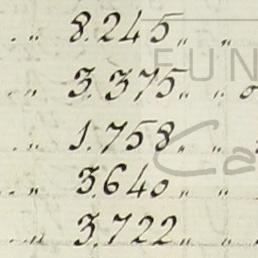 . „ 8.245 „ „
FUN
„ 3.375 „ „
. „ 1.758 „ „
Ca
. „ 3.640 „ „
. „ 3.722 „ „